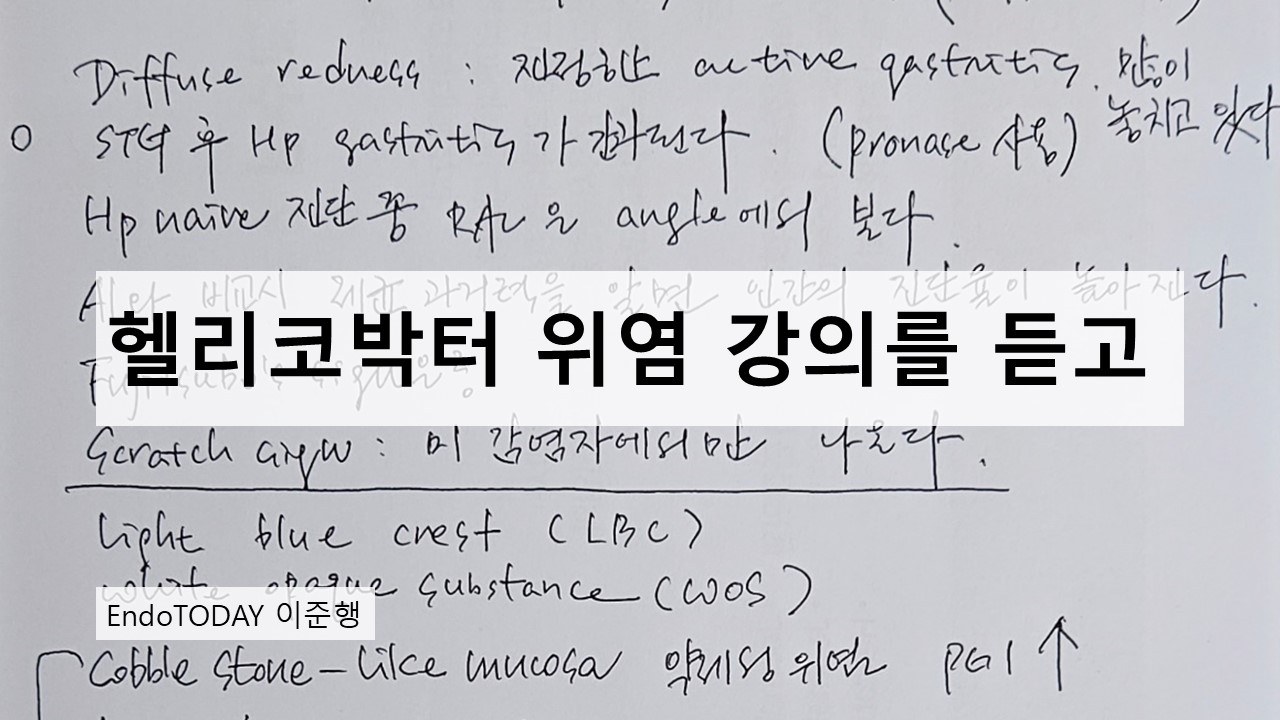 Diffuse redness : 진정한 active gastritis. 많이 놓치고 있다
STG 후 Hp gastritis가 간과된다. (pronase 사용)
Hp naive 진단 쫑 RAC은 angle에서 본다.
AI와 비교시 제균 과거력을 알면 인간의 진단율이 높아진다.
헬리코박터 위염 강의를 듣고
Scratch sign : 미감염자에서만 나온다.
light blue crest (LBC)
white opaque substance (WOS)
EndoTODAY 이준행
Cobble stone-like mucosa 약제성 위염 PG I ↑